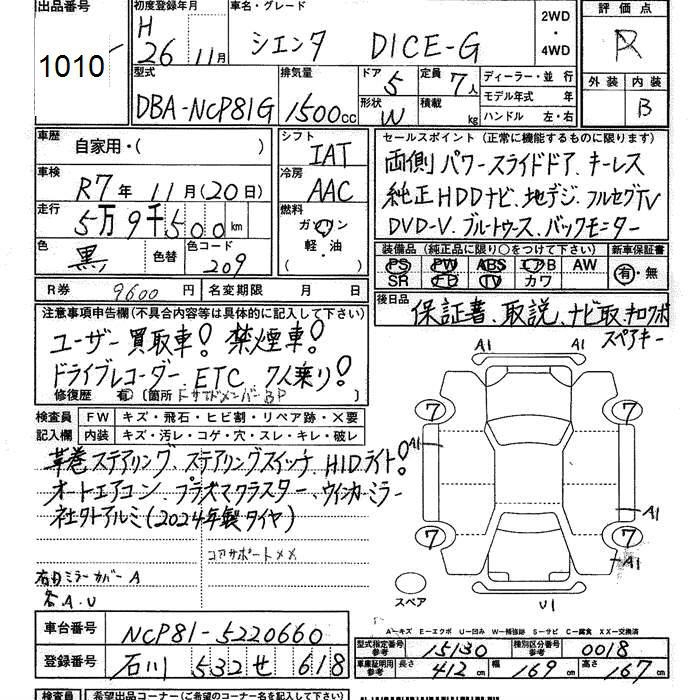 出品番号
1010
初度登録年月
H 26 11月
車名・グレード
シエンタ DICE-G
2WD
・
4WD
評価点
R
型式
DBA-NCP81G
排気量
1500cc
ドア 5
形状 W
定員 7人
積載 kg
ディーラー・並行
モデル年式 年
ハンドル 左・右
外装 内装
B
車歴
自家用・( )
シフト
IAT
車検
R7年11月(20日)
冷房
AAC
走行
5万9千500km
燃料
ガソリン
軽・油
( )
色
黒
色替
色コード
209
R券 9600円
名変期限 月 日
セールスポイント(正常に機能するものに限ります)
両側パワースライドドア、キーレス
純正HDDナビ、地デジ、フルセグTV
DVD-V、ブルートゥース、バックモニター
装備品(純正品に限り○をつけて下さい)
新車保証書
PS PW ABS エアB AW
SR TV カワ
有・無
後日品
保証書、取説、ナビ取、キロクボ
スペアキー
注意事項申告欄(不具合内容等は具体的に記入して下さい)
ユーザー買取車! 禁煙車!
ドライブレコーダー、ETC 7人乗り!
修復歴 有 〔箇所
検査員記入欄
FW キズ・飛石・ヒビ割・リペア跡・×要
内装 キズ・汚レ・コゲ・穴・スレ・キレ・破レ
革巻ステアリング、ステアリングスイッチ HIDライト!
オートエアコン、プラズマクラスター、ウィンカーミラー
社外アルミ(2024年製タイヤ)
コアサポート××
右ミラーカバーA
各A.U
A1 A1
7 7
A1
A1
7 7
A1
スペア
U1
A‥キズ E‥エクボ U‥凹み W‥補修跡 S‥サビ C‥腐食 XX‥交換済
車台番号
NCP81-5220660
登録番号
石川 532 せ 618
型式指定番号 参考
15130
類別区分番号 参考
0018
車庫証明用 参考
長さ 412cm 幅 169cm 高さ 167cm
検査員
希望出品コーナー(ご希望のコーナー名を記入して下さい)